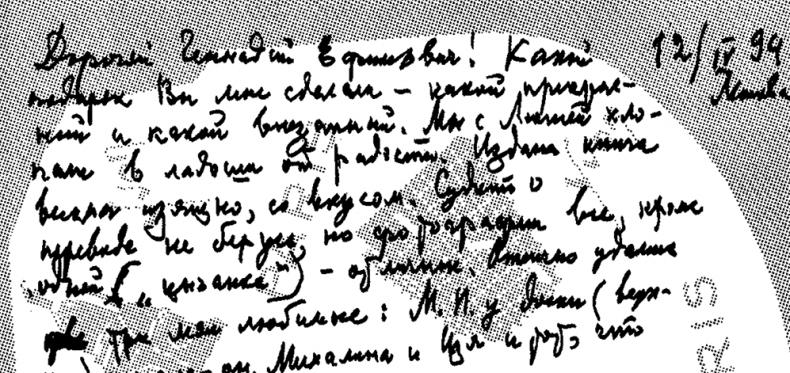 Дорогой Геннадий Ефимович! Какой 12/IV 94
подарок Вы мне сделали – какой прекрас- Москва
ный и какой внезапный. Мы с Люшей хло-
пали в ладоши от радости. Издана книга
весьма изящно, со вкусом. Судить о
переводе не берусь, но фотографии все, кроме
одной („цыганка") – отличные. Отлично удались
три мои любимые: М. П. у доски (верх-
Михалина и Цля и то, что
RIS